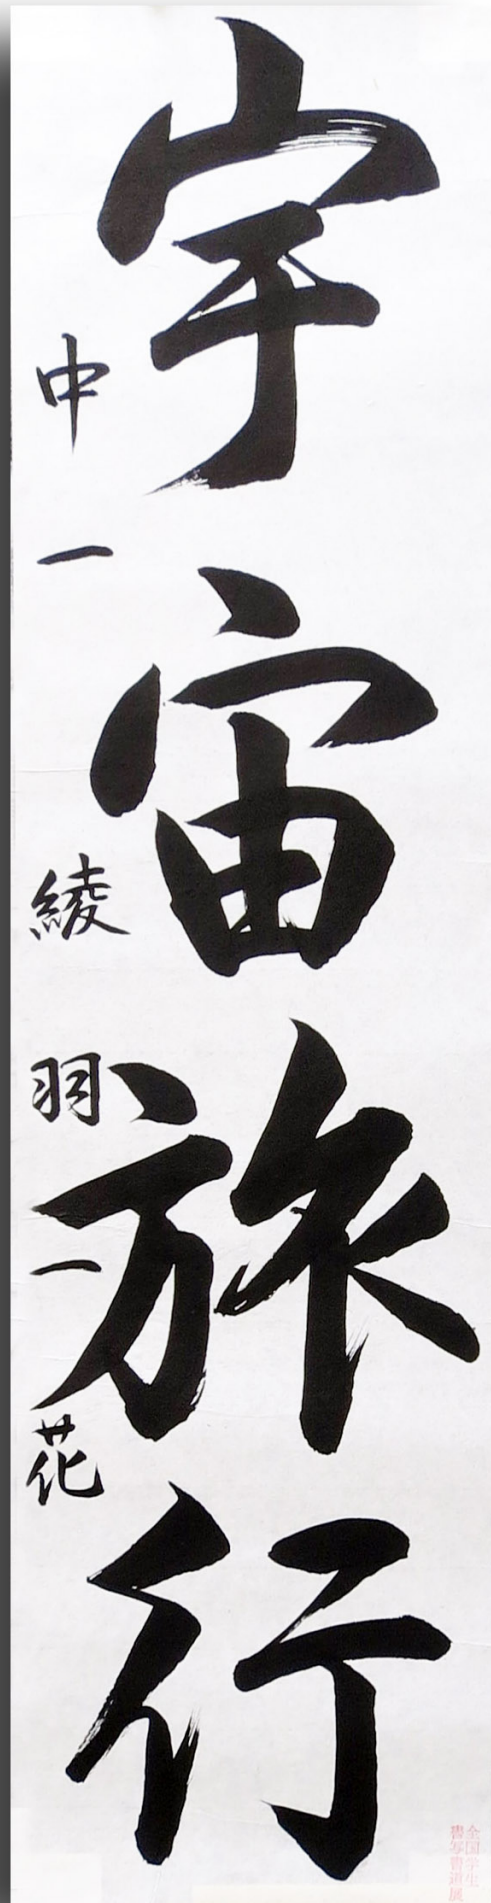 宇宙旅行
中一 綾羽一花
全国学生
書写書道展